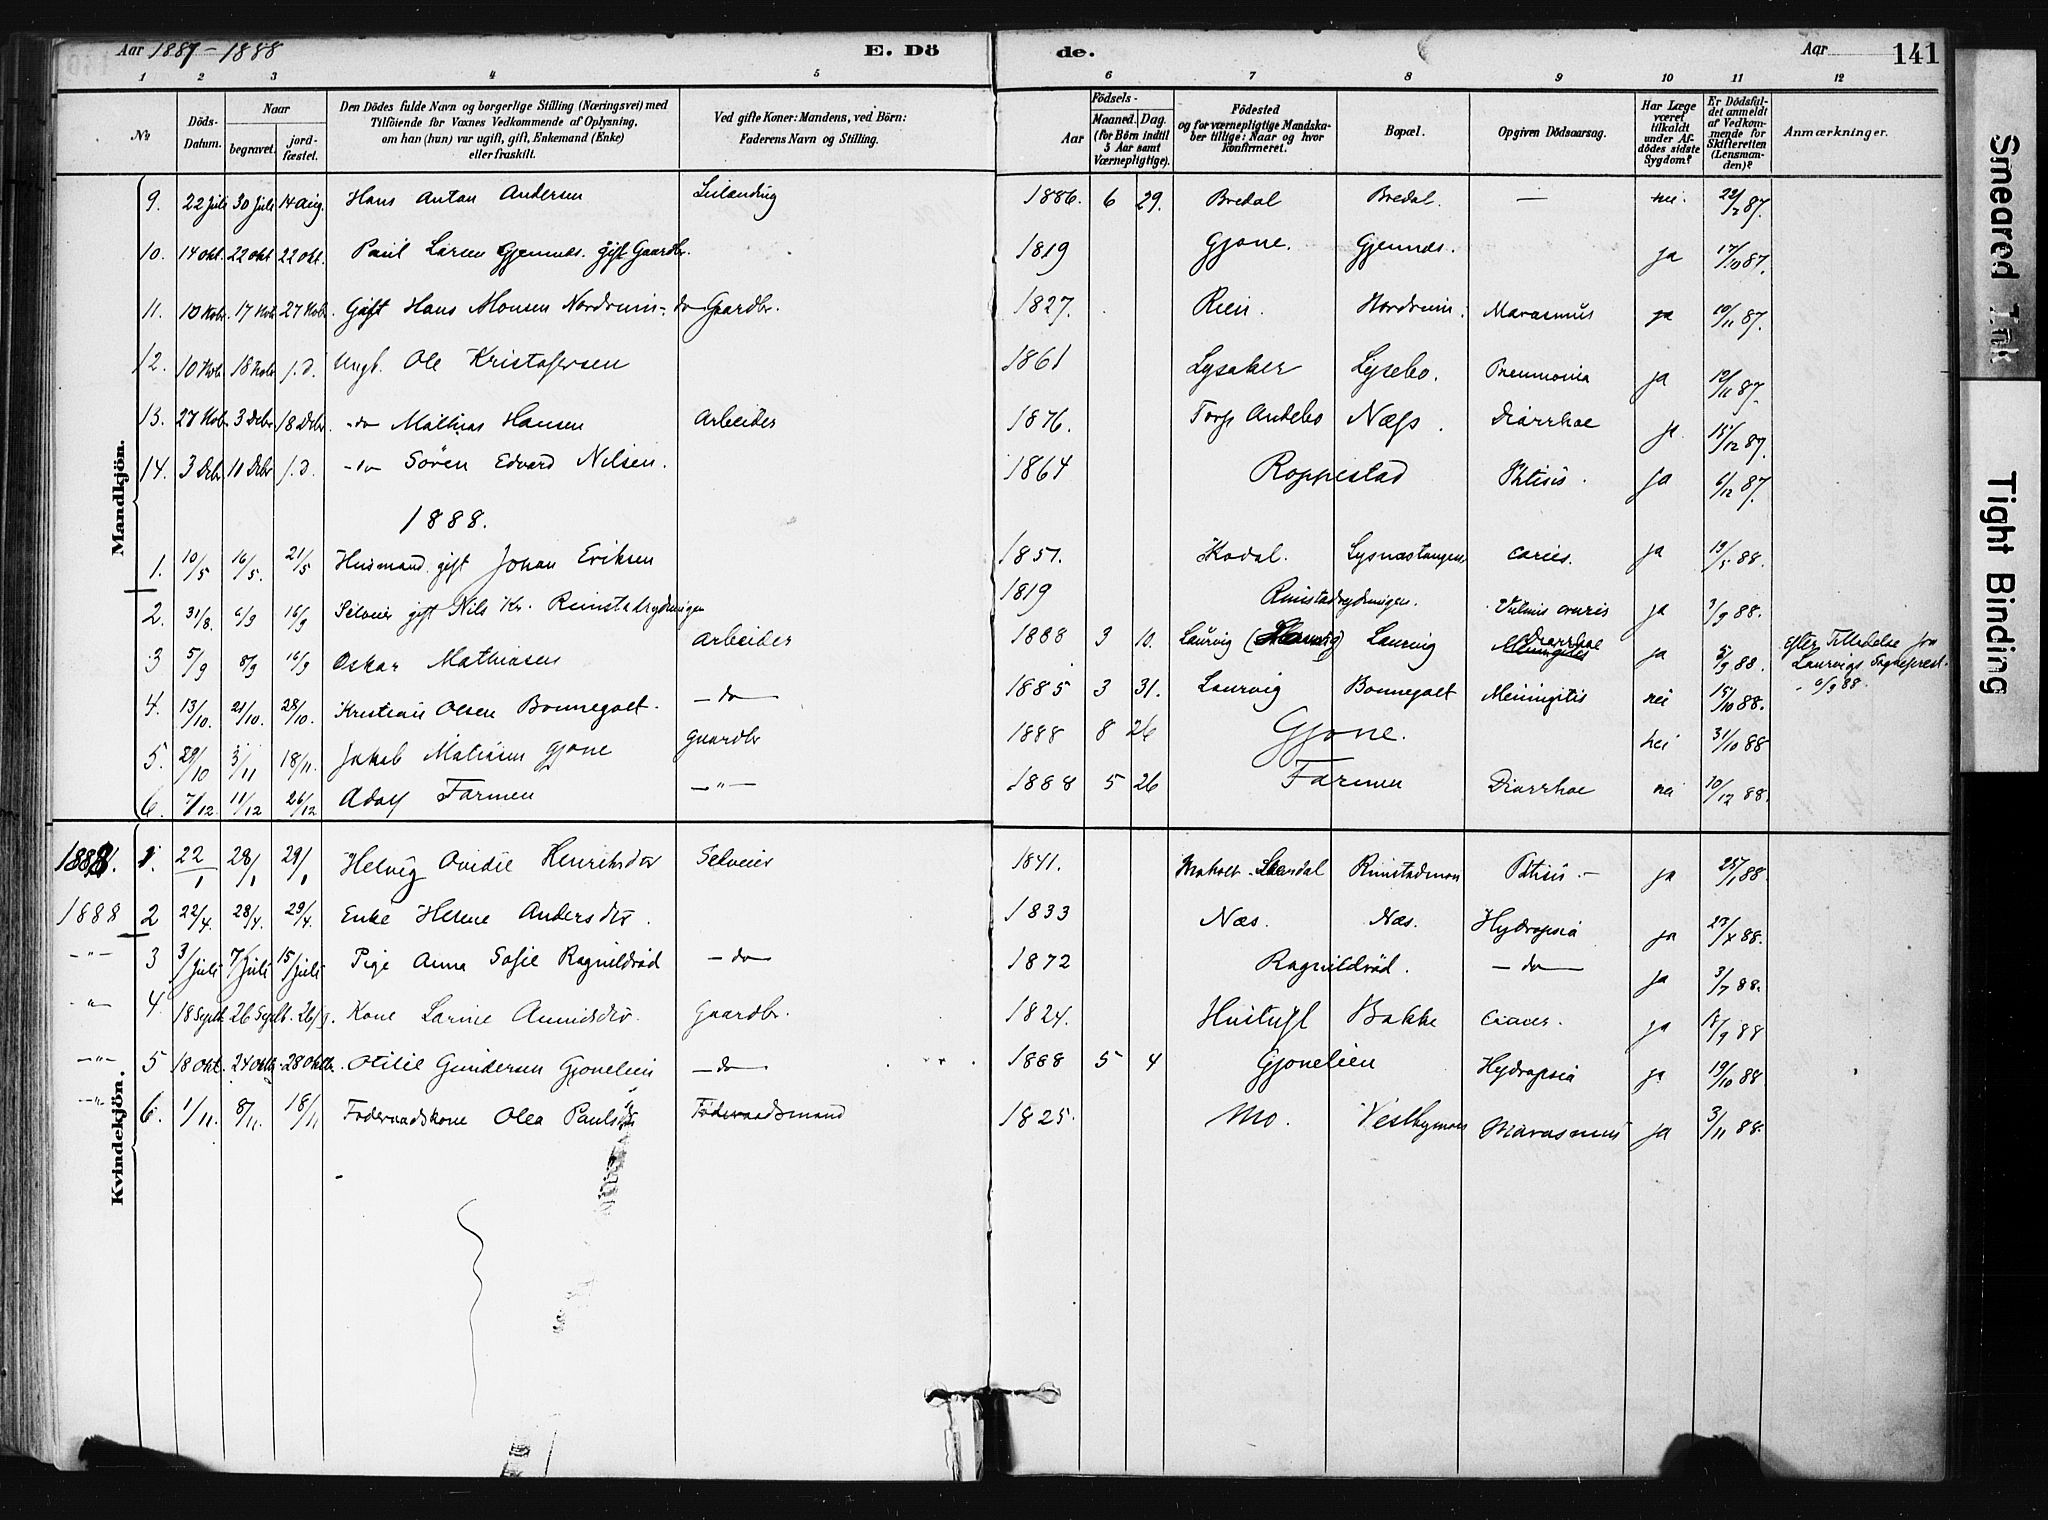 Aar 1887 - 1888 E. Dö de. Aar 141
1 2 3 4 5 6 7 8 9 10 11 12
No Döds-Datum. Naar begravet. jordfæstet. Den Dödes fulde Navn og borgerlige Stilling (Næringsvei) med Tilföiende for Voxnes Vedkommende af Oplysning, om han (hun) var ugift, gift, Enkemand (Enke) eller fraskilt. Ved gifte Koner: Mandens, ved Börn: Faderens Navn og Stilling. Födsels- Aar Maaned. Dag. (for Börn indtil 5 Aar samt Værnepligtige). Födested og for værnepligtige Mandskaber tillige: Naar og hvor konfirmeret. Bopæl. Opgiven Dödsaarsag. Har Læge været tilkaldt under Afdödes sidste Sygdom? Er Dödsfaldet anmeldt af Vedkommende for Skifteretten (Lensmanden)? Anmærkninger.
Mandkjön.
9. 22 Juli 30 Juli 14 Aug. Hans Anton Andersen Leilending 1886. 6 29. Bredal Bredal. — nei. 22/7 87.
10. 14 Okt. 22 Okt 22 Okt. Paul Larsen Gjennes. gift Gaardbr. 1819 Gjone. Gjennes. ja 17/10 87.
11. 10 Nobr 17 Nob 27 Nobr. Gift Hans Monsen Nordrum - do Gaardbr. 1827. Rien. Nordrum. Marasmus ja 10/11 87.
12. 10 Nob 18 Nobr f. d. Ungk. Ole Kristofersen 1861 Lysaker Lysebo. Pneumonia ja 12/11 87.
13. 27 Nob. 3 Debr 18 Debr - do Mathias Hansen Arbeider 1876. Torp Andebo Næss. Diarrhoe ja 15/12 87.
14. 3 Debr 11 Debr f. d. - do Sören Edvard Nilsen. 1864 Roppestad Phtisis. ja 6/12 87.
1888.
1. 10/5 16/5. 21/5 Husmand gift Johan Eriksen 1851. Kodal. Lysnæstangen caries. ja 13/5 88.
2. 31/8. 6/9 16/9 Selveier gift Nils Kr. Rimstadrydningen 1819 Rimstadrydningen. Vulnus cruris ja 3/9 88.
3 5/9 8/9 16/9 Oskar Mathiasen Arbeider 1888 3 10. Laurvig Laurvig Diarrhoe ja 5/9 88. Efter Tilladelse fra Laurvigs Sogneprest - 6/9 88.
4. 13/10. 21/10. 28/10. Kristian Olsen Bonnegolt. - do 1885 3 31. Laurvig Bonnegolt Meningitis nei 15/10 88.
5. 29/10 3/11 18/11. Jakob Matiasen Gjone Gaardbr 1888 8 26 Gjone. nei 31/10 88
6. 7/12. 11/12 26/12 Adolf Farmen — " — 1888 5 26 Farmen Diarrhoe nei 10/12 88.
Kvindekjön.
1888. 1. 22/1 28/1 29/1 Helvig Ovidie Henriksdtr Selveier 1841. Skandal Rimstadmoen Phtisis — ja 25/1 88.
1888 2 22/4. 28/4. 29/4. Enke Helene Andersdtr. 1833 Næs. Næs. Hydropsia ja 23/4 88.
- " - 3 3/Juli 7/Juli 15/Juli Pige Anna Sofie Ragnildröd - do 1872 Ragnildröd. - do ja 3/7 88.
- " - 4. 18 Septb. 26 Septb. 26/9. Kone Larine Amundsdtr. Gaardbr. 1824. Hvitufl Bakke Cancer. ja 18/9 88
- " - 5 18 Okt. 24 Oktb. 28 Oktbr. Otilie Gundersen Gjonelien - do 1888 5 4 Gjonelien Hydropsia ja 19/10 88
- " - 6. 1/11. 8/11. 18/11 Föderaadskone Olea Paulsdtr Föderaadsmand 1825. Mo. Vestbymoen Marasmus ja 3/11 88.
Smeared Ink
Tight Binding